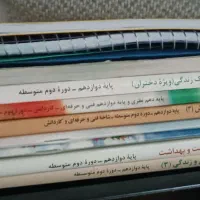 زندگی (ویژهٔ دختران) پایهٔ دوازدهم ـ دورهٔ دوم متوسطه
پایهٔ دهم نظری و پایهٔ دوازدهم فنی و حرفه‌ای ـ کاردانش ـ
(۳) پایهٔ دوازدهم دورهٔ دوم متوسطه ـ شاخهٔ فنی و حرفه‌ای و کاردانش
و بهداشت پایهٔ دوازدهم ـ دورهٔ دوم متوسطه
و زندگی (۳) پایهٔ دوازدهم ـ دورهٔ دوم متوسطه